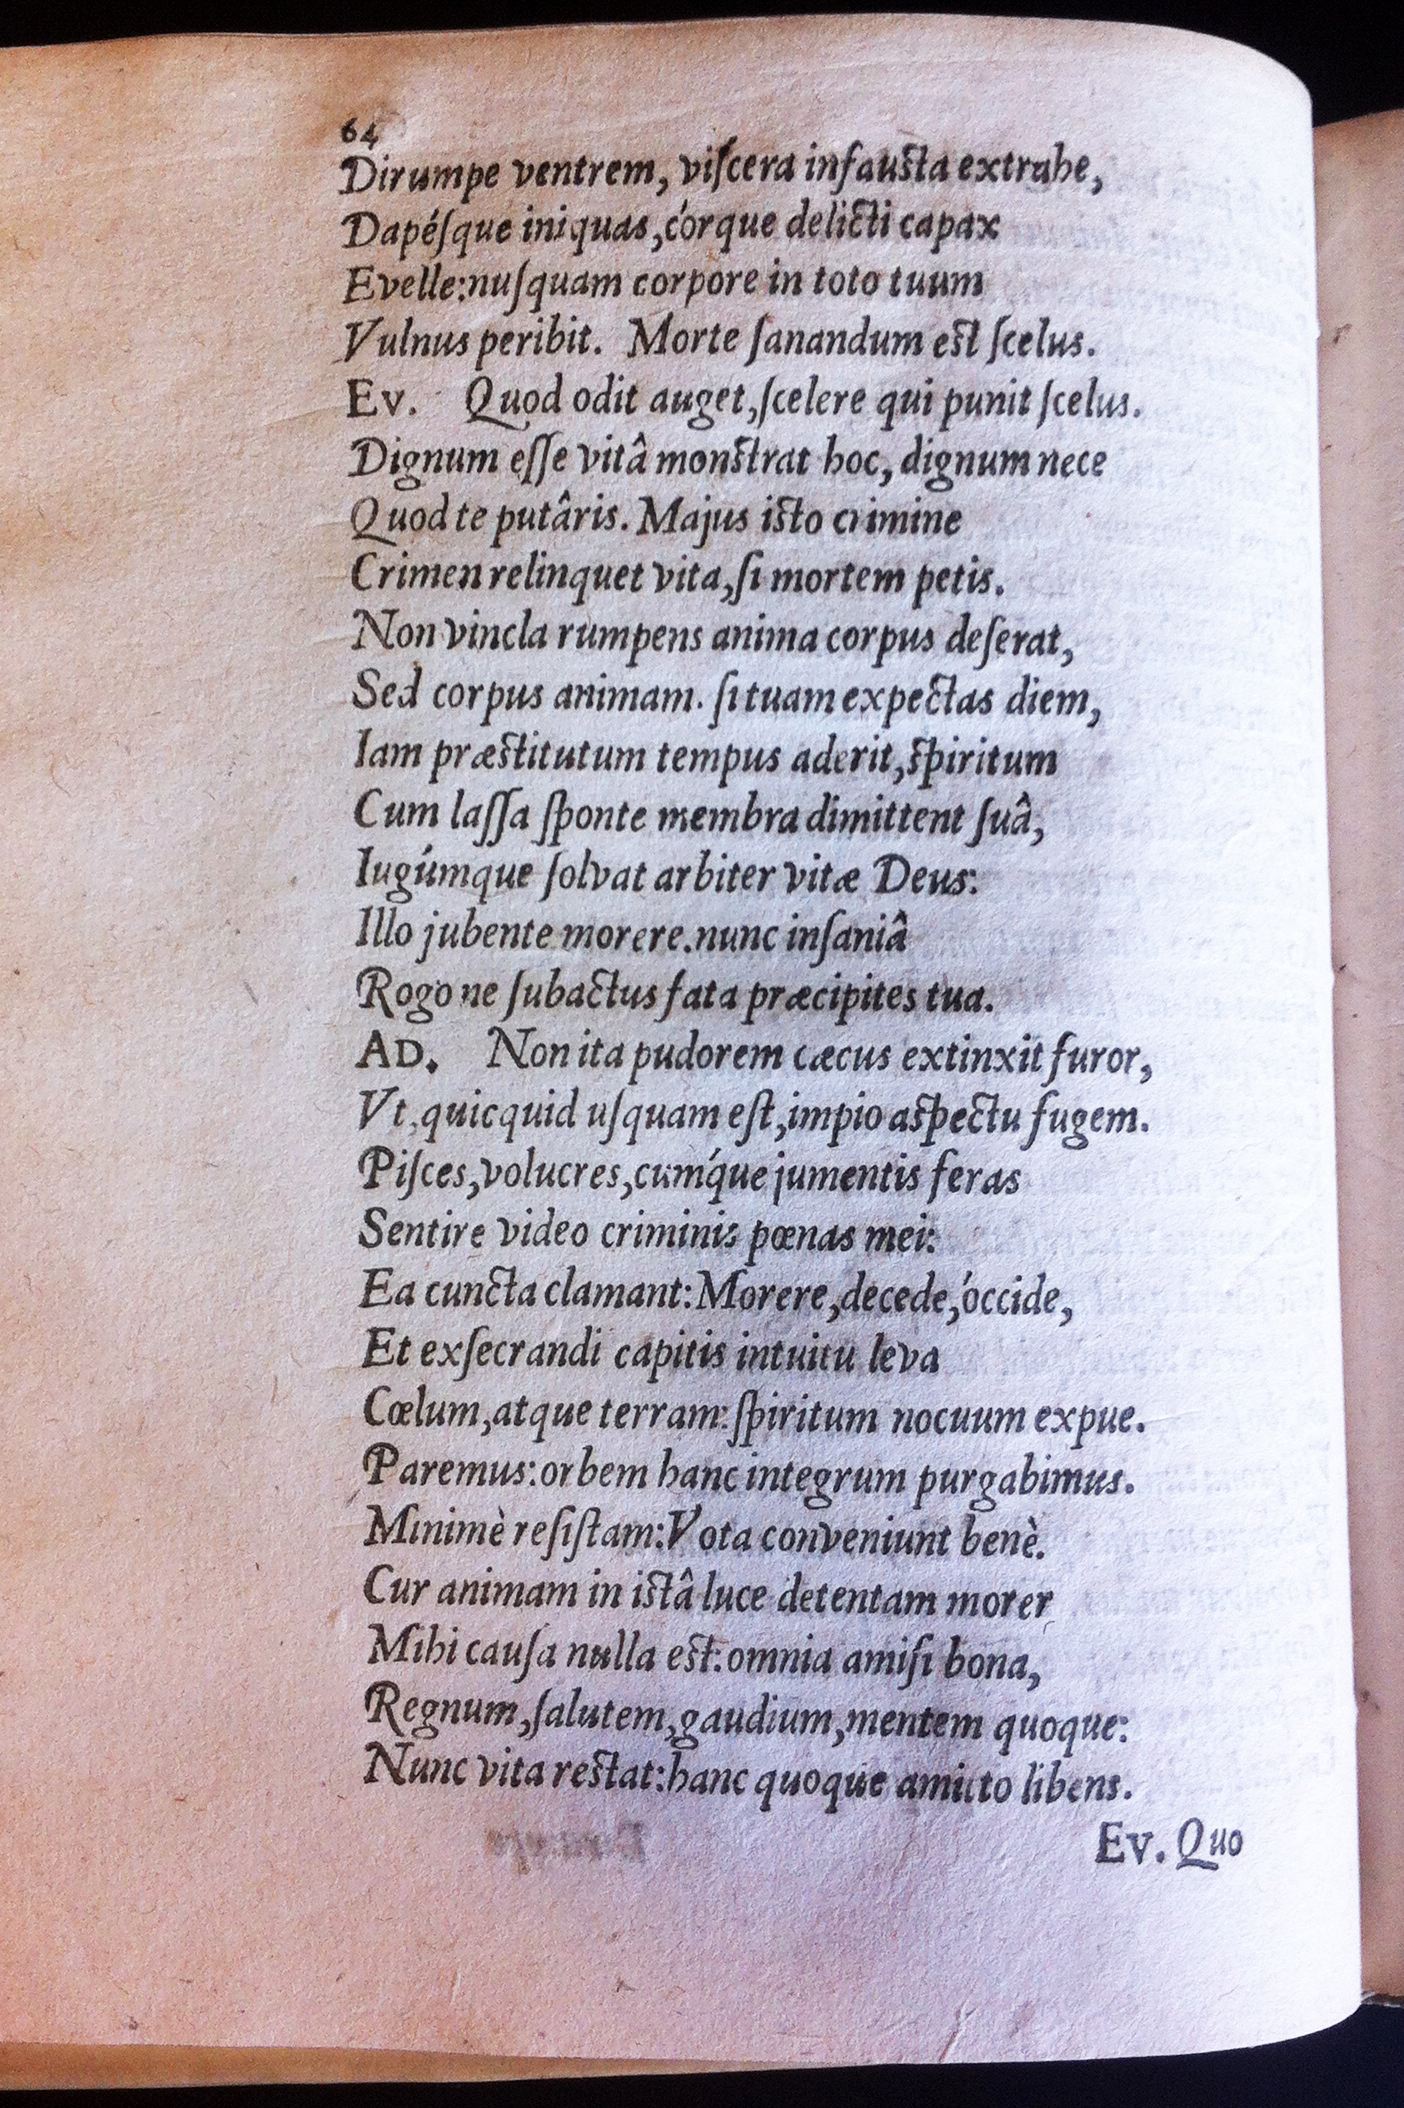 64
Dirumpe ventrem, viſcera infauſta extrahe,
Dapéſque iniquas, córque delicti capax
Evelle: nuſquam corpore in toto tuum
Vulnus peribit. Morte ſanandum eſt ſcelus.
Ev. Quod odit auget, ſcelere qui punit ſcelus.
Dignum eſſe vitâ monſtrat hoc, dignum nece
Quod te putâris. Majus iſto crimine
Crimen relinquet vita, ſi mortem petis.
Non vincla rumpens anima corpus deſerat,
Sed corpus animam. ſi tuam expectas diem,
Iam præſtitutum tempus aderit, ſpiritum
Cum laſſa ſponte membra dimittent ſuâ,
Iugúmque ſolvat arbiter vitæ Deus:
Illo jubente morere. nunc inſaniâ
Rogo ne ſubactus fata præcipites tua.
AD. Non ita pudorem cæcus extinxit furor,
Vt, quicquid uſquam eſt, impio aſpectu fugem.
Piſces, volucres, cumq́ue jumentis feras
Sentire video criminis pœnas mei:
Ea cuncta clamant: Morere, decede, óccide,
Et exſecrandi capitis intuitu leva
Cœlum, atque terram: ſpiritum nocuum expue.
Paremus: orbem hanc integrum purgabimus.
Minimè reſiſtam: Vota conveniunt benè.
Cur animam in iſtâ luce detentam morer
Mihi cauſa nulla eſt: omnia amiſi bona,
Regnum, ſalutem, gaudium, mentem quoque:
Nunc vita reſtat: hanc quoque amitto libens.
Ev. Quo